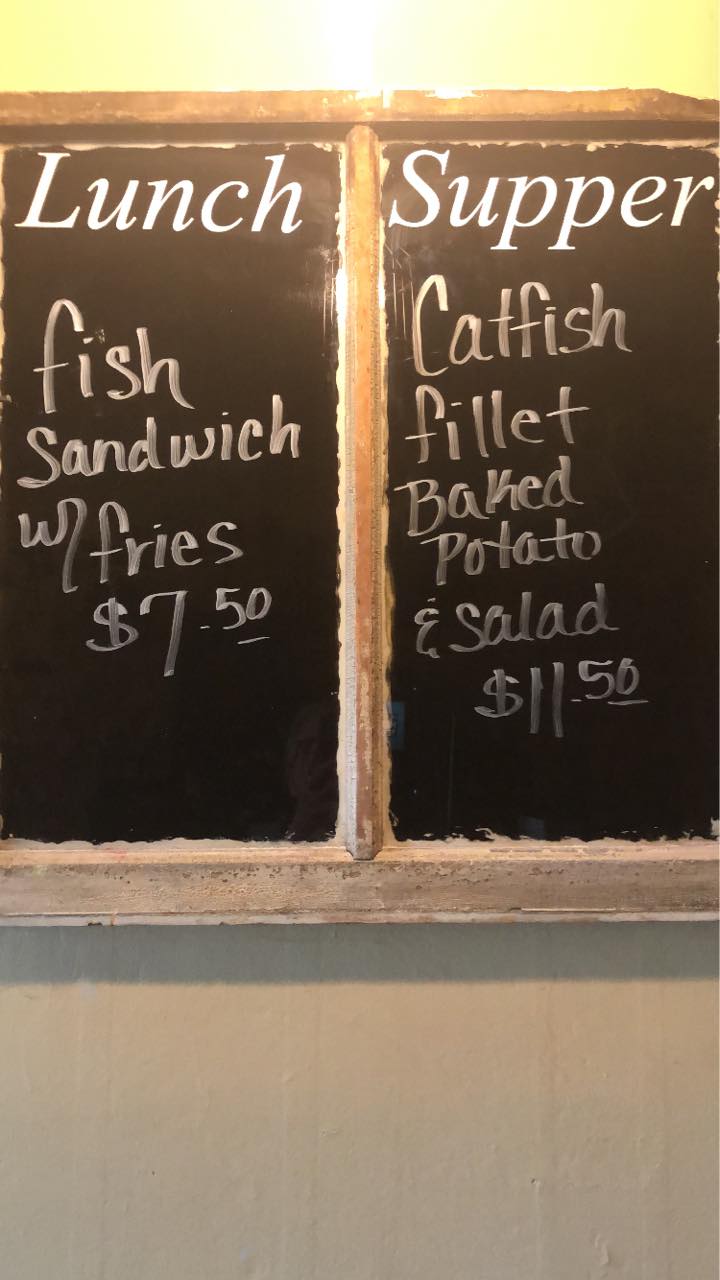 Lunch
fish
Sandwich
w/fries
$7.50
Supper
Catfish
fillet
Baked
Potato
& Salad
$11.50